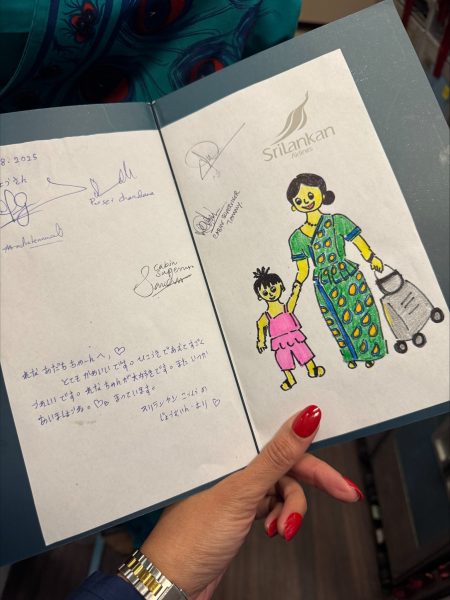 8.2025
Purser chandana
Cabin
れな あだち ちゃーんへ, ♡
とても かわいい です。ひこうき で あえて すごく
うれしい です。れな ちゃん が 大好き です。また いつか
あいましょうね。♡ まっています。
スリランカン こうくう の
じょうむいん。より ♡
SriLankan
Airlines
CABIN SUPERVISOR